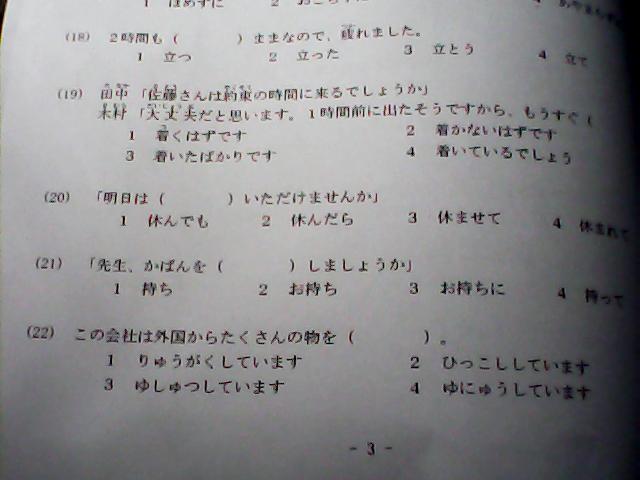 1 ほめずに 2 おこらずに 4
(18) 2時間も( )ままなので、疲れました。
1 立つ 2 立った 3 立とう 4 立て
(19) 田中 「佐藤さんは約束の時間に来るでしょうか」
木村 「大丈夫だと思います。1時間前に出たそうですから、もうすぐ(
1 着くはずです 2 着かないはずです
3 着いたばかりです 4 着いているでしょう
(20) 「明日は( )いただけませんか」
1 休んでも 2 休んだら 3 休ませて 4 休まれて
(21) 「先生、かばんを( )しましょうか」
1 持ち 2 お持ち 3 お持ちに 4 持って
(22) この会社は外国からたくさんの物を( )。
1 りゅうがくしています 2 ひっこししています
3 ゆしゅつしています 4 ゆにゅうしています
- 3 -